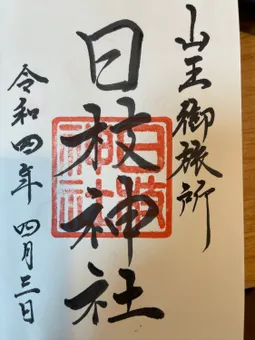 山王御旅所
日枝神社
日枝神社
令和四年 四月三日